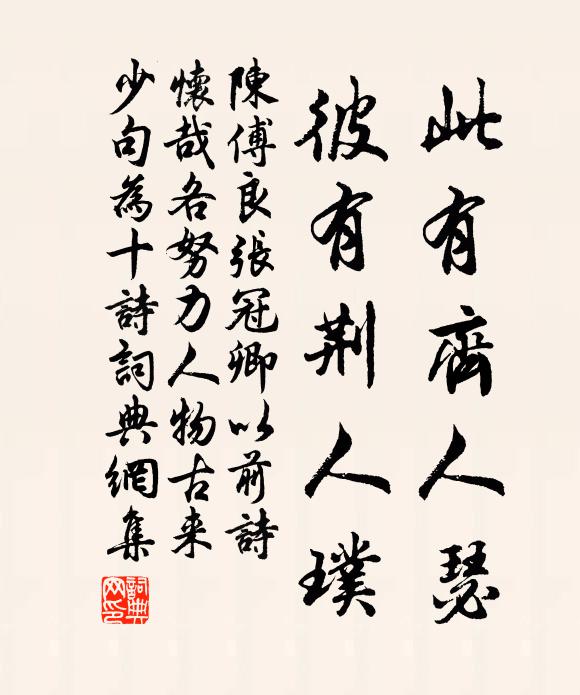 此有齊人瑟
彼有荆人璞
陳傅良張冠卿以前詩
懷哉各努力人物古来
少句為十詩詞典網集
詞典網印